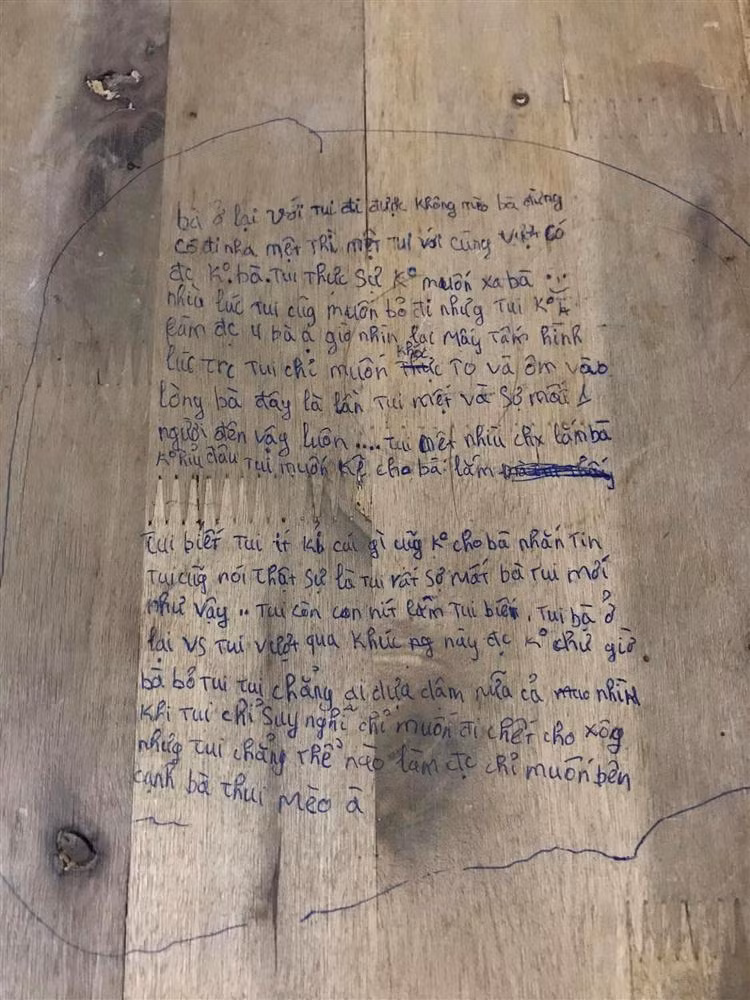 bà ở lại với tui đi được không mèo bà đừng
có đi nha mệt thì mệt tui với cùng vượt có
đc ko. bà. tui thực sự ko muốn xa bà
nhìu lúc tui cũg muốn bỏ đi nhưg tui ko
làm đc u bà ạ giờ nhìn lại mấy tấm hình
lúc trc tui chỉ muốn khóc to và ôm vào
lòng bà đây là lần tui mệt và sợ mất 1
người đến vậy luôn .... tui mệt nhìu chx lắm bà
ko hỉu đâu tui muốn kể cho bà lắm
tui biết tui ít kể cái gì cũg ko cho bà nhắn tin
tui cũg nói thật sự là tui rất sợ mất bà tui mới
như vậy .. tui còn con nít lắm tui biết, tui bà ở
lại vs tui vượt qua khúc ng này đc ko chứ giờ
bà bỏ tui tui chẳng ai dựa dẫm nữa cả nhìu
khi tui chỉ suy nghĩ chỉ muốn đi chết cho xôg
nhưg tui chẳng thể nào làm đc chỉ muốn bên
cạnh bà thui mèo à